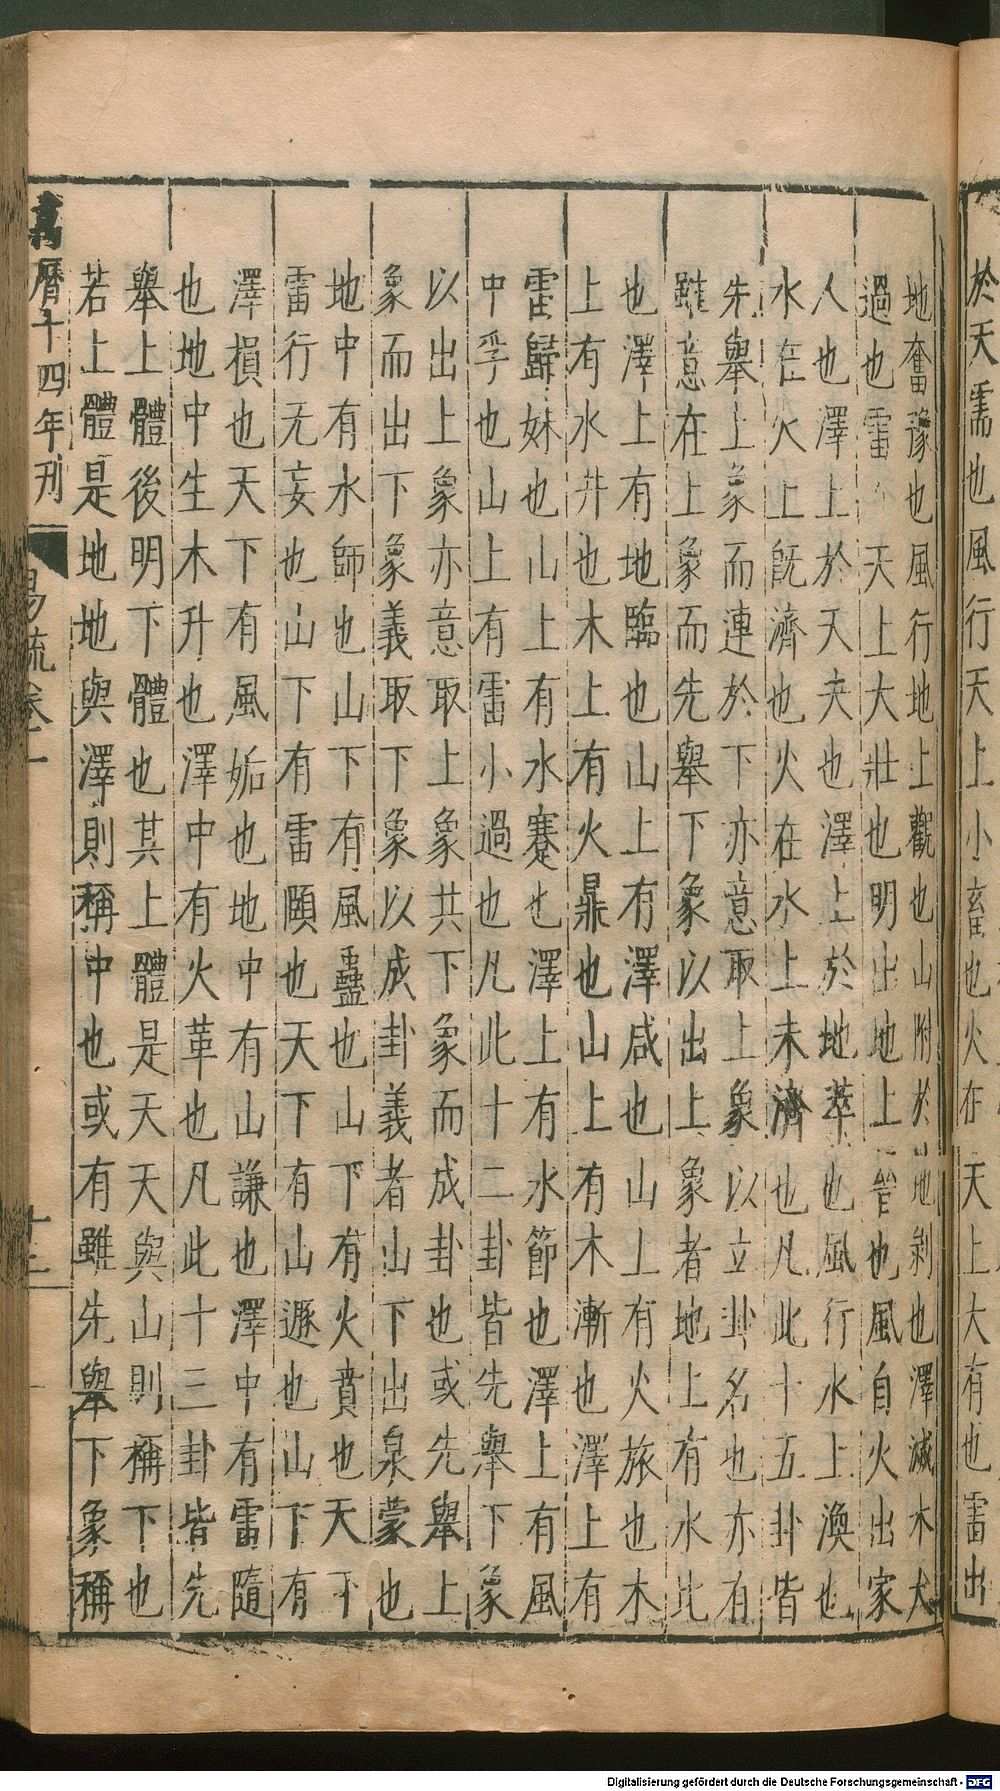 於天需也風行天上小畜也火在天上大有也雷出
地奮豫也風行地上觀也山附於地剝也澤滅木大
過也雷 天上大壯也明出地上晉也風自火出家
人也澤上於天夬也澤上於地萃也風行水上渙也
水在火上旣濟也火在水上未濟也凡此十五卦皆
先舉上象而連於下亦意取上象以立卦名也亦有
雖意在上象而先舉下象以出上象者地上有水比
也澤上有地臨也山上有澤咸也山上有火旅也木
上有水井也木上有火鼎也山上有木漸也澤上有
雷歸妹也山上有水蹇也澤上有水節也澤上有風
中孚也山上有雷小過也凡此十二卦皆先舉下象
以出上象亦意取上象共下象而成卦也或先舉上
象而出下象義取下象以成卦義者山下出泉蒙也
地中有水師也山下有風蠱也山下有火賁也天下
雷行无妄也山下有雷頤也天下有山遯也山下有
澤損也天下有風姤也地中有山謙也澤中有雷隨
也地中生木升也澤中有火革也凡此十三卦皆先
舉上體後明下體也其上體是天天與山則稱下也
若上體是地地與澤則稱中也或有雖先舉下象稱
萬曆十四年刊
易疏卷二
十三
Digitalisierung gefördert durch die Deutsche Forschungsgemeinschaft - DFG